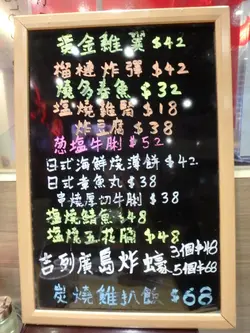 黃金雞翼 $42
榴槤炸彈 $42
燒多春魚 $32
塩燒雞腎 $18
炸豆腐 $38
葱塩牛脷 $52
日式海鮮燒薄餅 $42
日式章魚丸 $38
串燒厚切牛脷 $38
塩燒鯖魚 $48
塩燒五花腩 $48
吉列廣島炸蠔 3個$48
5個$68
炭燒雞扒飯 $68